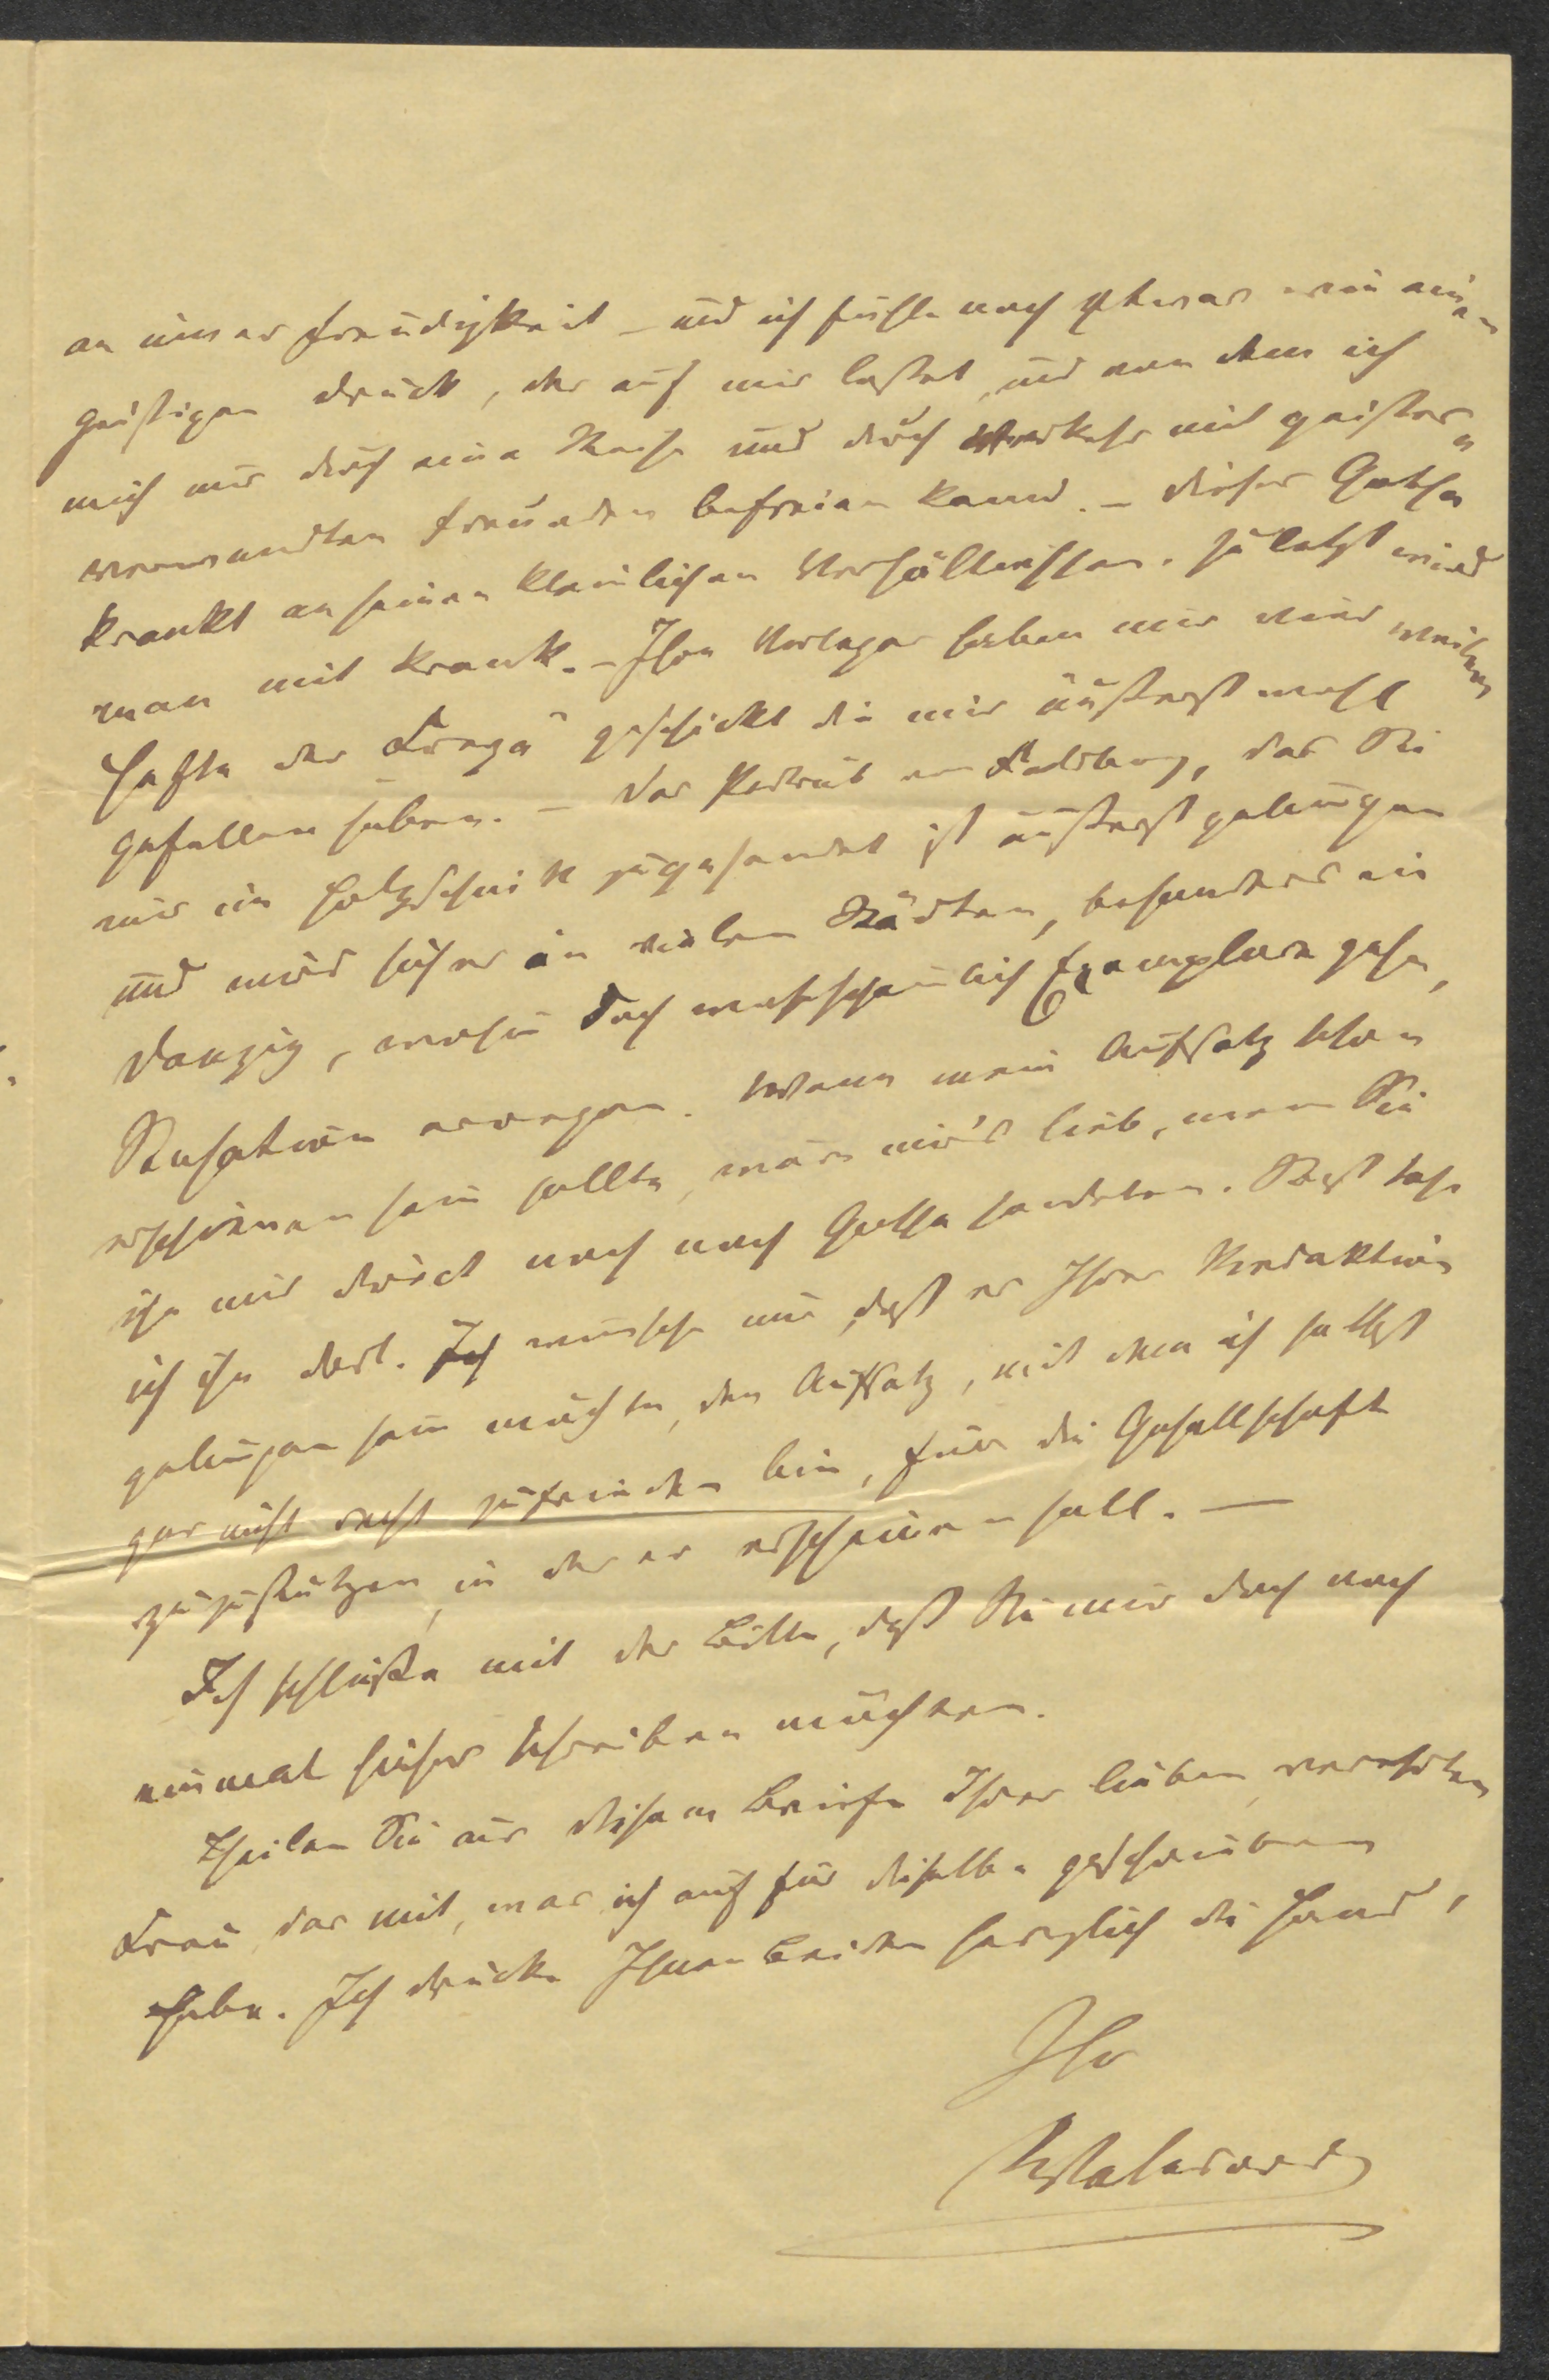 an innerer Freudigkeit – und ich fühle noch etwas wie einen
geistigen Druck, der auf mir lastet, und von dem ich
mich nur durch eine Reise und durch Verkehr mit geistes-
verwandten Freunden befreien kann. – Dieses Gotha
krankt an seinen kleinlichen Verhältnissen. Zuletzt wird
man mit krank. – Ihre Verleger haben mir vier weitere
Hefte der "Frega" geschickt die mir äußerst wohl
gefallen haben. – Das Portrait von, das Sie
mir in Holzschnitt zugesendet ist äußerst gelungen
und wird sicher in vielen Städten, besonders in
Danzig, wohin doch wahrscheinlich Exemplare gehen,
Sensation erregen. Wenn mein Aufsatz schon
erschienen sein sollte, wäre mir's lieb, wenn Sie
ihn mir direct noch nach Gotha sendeten. Sonst sehe
ich ihn dort. Ich wünsche nur, daß es Ihrer Redaktion
gelungen sein möchte, den Aufsatz, mit dem ich selbst
gar nicht recht zufrieden bin, für die Gesellschaft
zuzustutzen, in der er erscheinen soll. –
Ich schließe mit der Bitte, daß Sie mir doch noch
einmal hieher schreiben möchten.
Theilen Sie aus diesem Briefe Ihrer lieben, verehrten
Frau, das mit, was ich auch für dieselbe geschrieben
habe. Ich drücke Ihnen Beiden herzlich die Hand,
Ihr